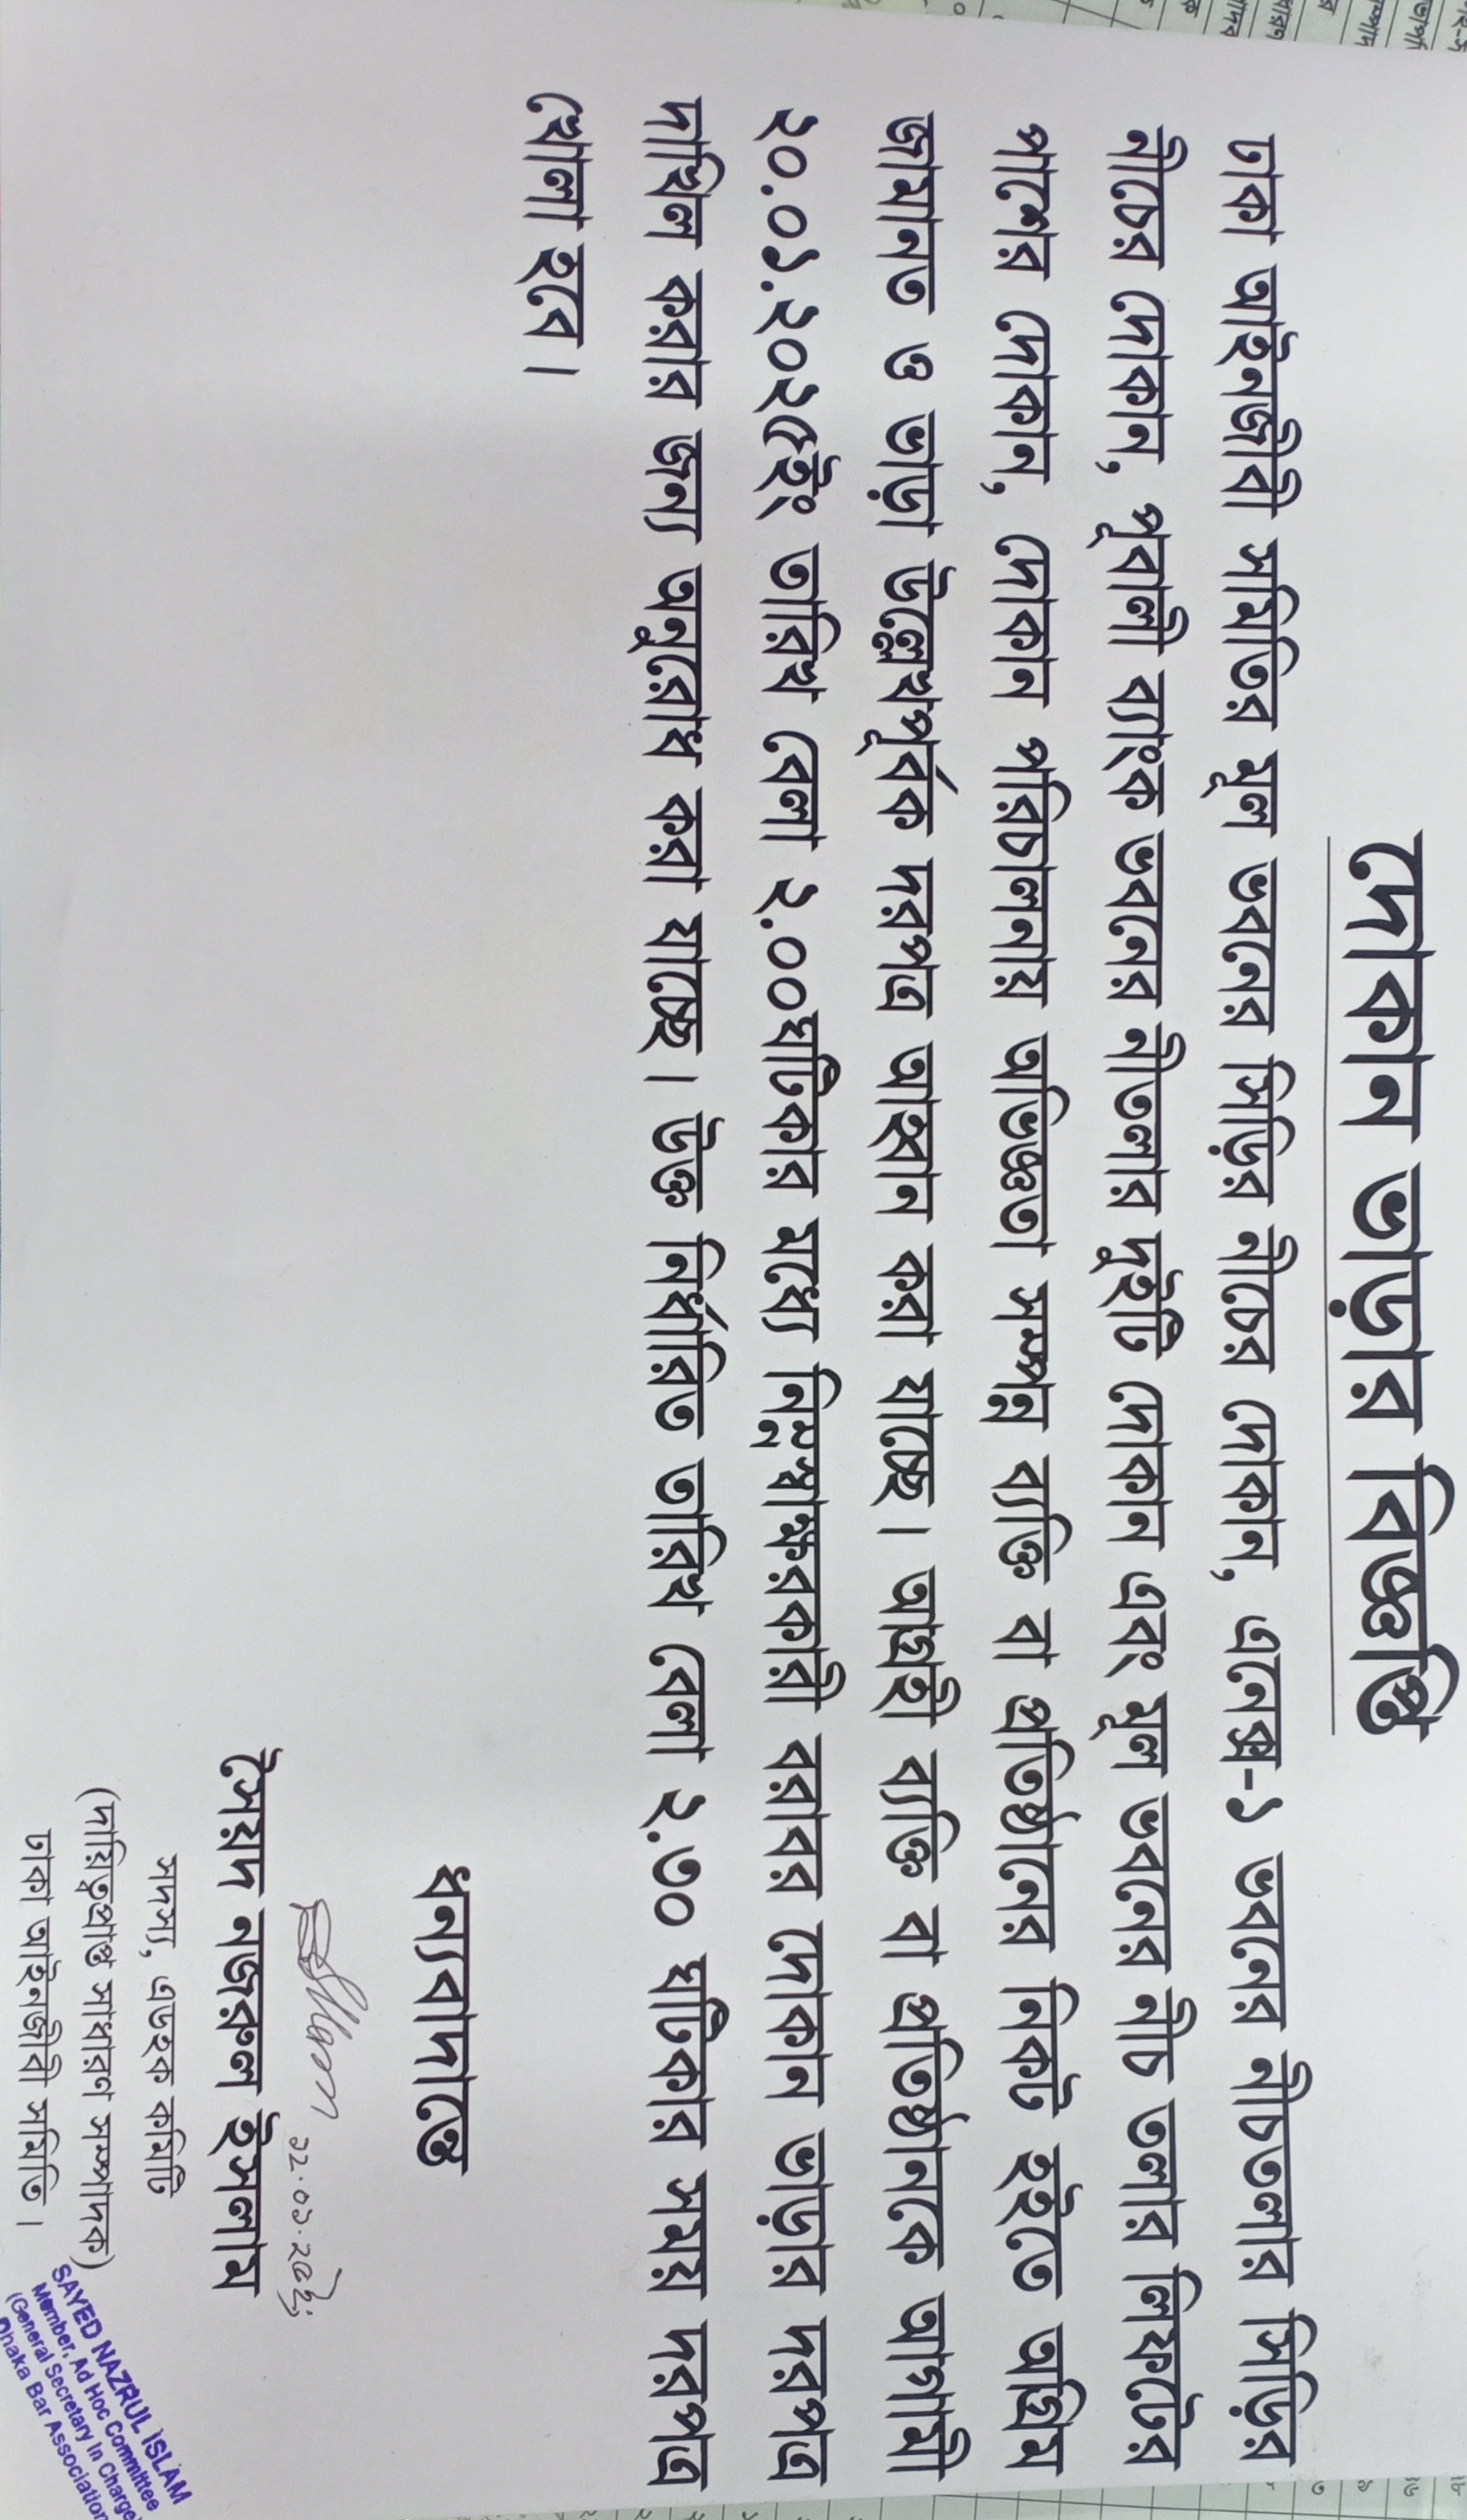 দোকান ভাড়ার বিজ্ঞপ্তি
ঢাকা আইনজীবী সমিতির মূল ভবনের সিড়ির নীচের দোকান, এনেক্স-১ ভবনের নীচতলার সিড়ির
নীচের দোকান, পূবালী ব্যাংক ভবনের নীতলার দুইটি দোকান এবং মূল ভবনের নীচ তলার লিফটের
পাশের দোকান, দোকান পরিচালনায় অভিজ্ঞতা সম্পন্ন ব্যক্তি বা প্রতিষ্ঠানের নিকট হইতে অগ্রিম
জামানত ও ভাড়া উল্লেখপূর্বক দরপত্র আহ্বান করা যাচ্ছে। আগ্রহী ব্যক্তি বা প্রতিষ্ঠানকে আগামী
২০.০১.২০২৫ইং তারিখ বেলা ২.০০ঘটিকার মধ্যে নিম্নস্বাক্ষরকারী বরাবর দোকান ভাড়ার দরপত্র
দাখিল করার জন্য অনুরোধ করা যাচ্ছে। উক্ত নির্ধারিত তারিখ বেলা ২.৩০ ঘটিকার সময় দরপত্র
খোলা হবে।
ধন্যবাদান্তে
সৈয়দ নজরুল ইসলাম
সদস্য, এডহক কমিটি
(দায়িত্বপ্রাপ্ত সাধারণ সম্পাদক)
ঢাকা আইনজীবী সমিতি।
SAYED NAZRUL ISLAM
Member, Ad Hoc Committee
(General Secretary In Charge)
Dhaka Bar Association